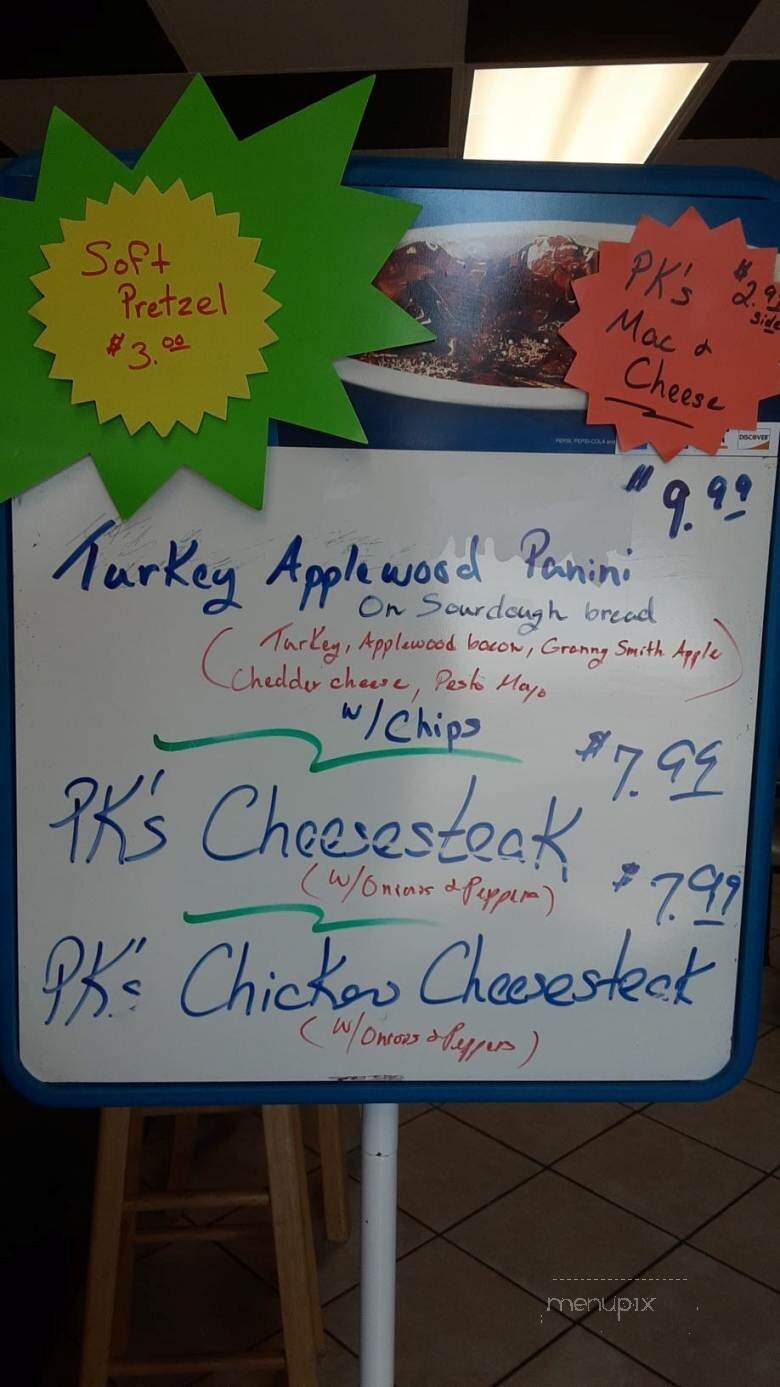 Soft
Pretzel
$3.00
PK's
Mac &
Cheese
side
PEPSI, PEPSI-COLA and
DISCOVER
$9.99
Turkey Applewood Panini
On Sourdough bread
(Turkey, Applewood bacon, Granny Smith Apple
Chedder cheese, Pesto Mayo)
w/Chips
$7.99
PK's Cheesesteak
(w/Onions & Peppers)
$7.99
PK's Chicken Cheesesteak
(w/Onions & Peppers)
menupix